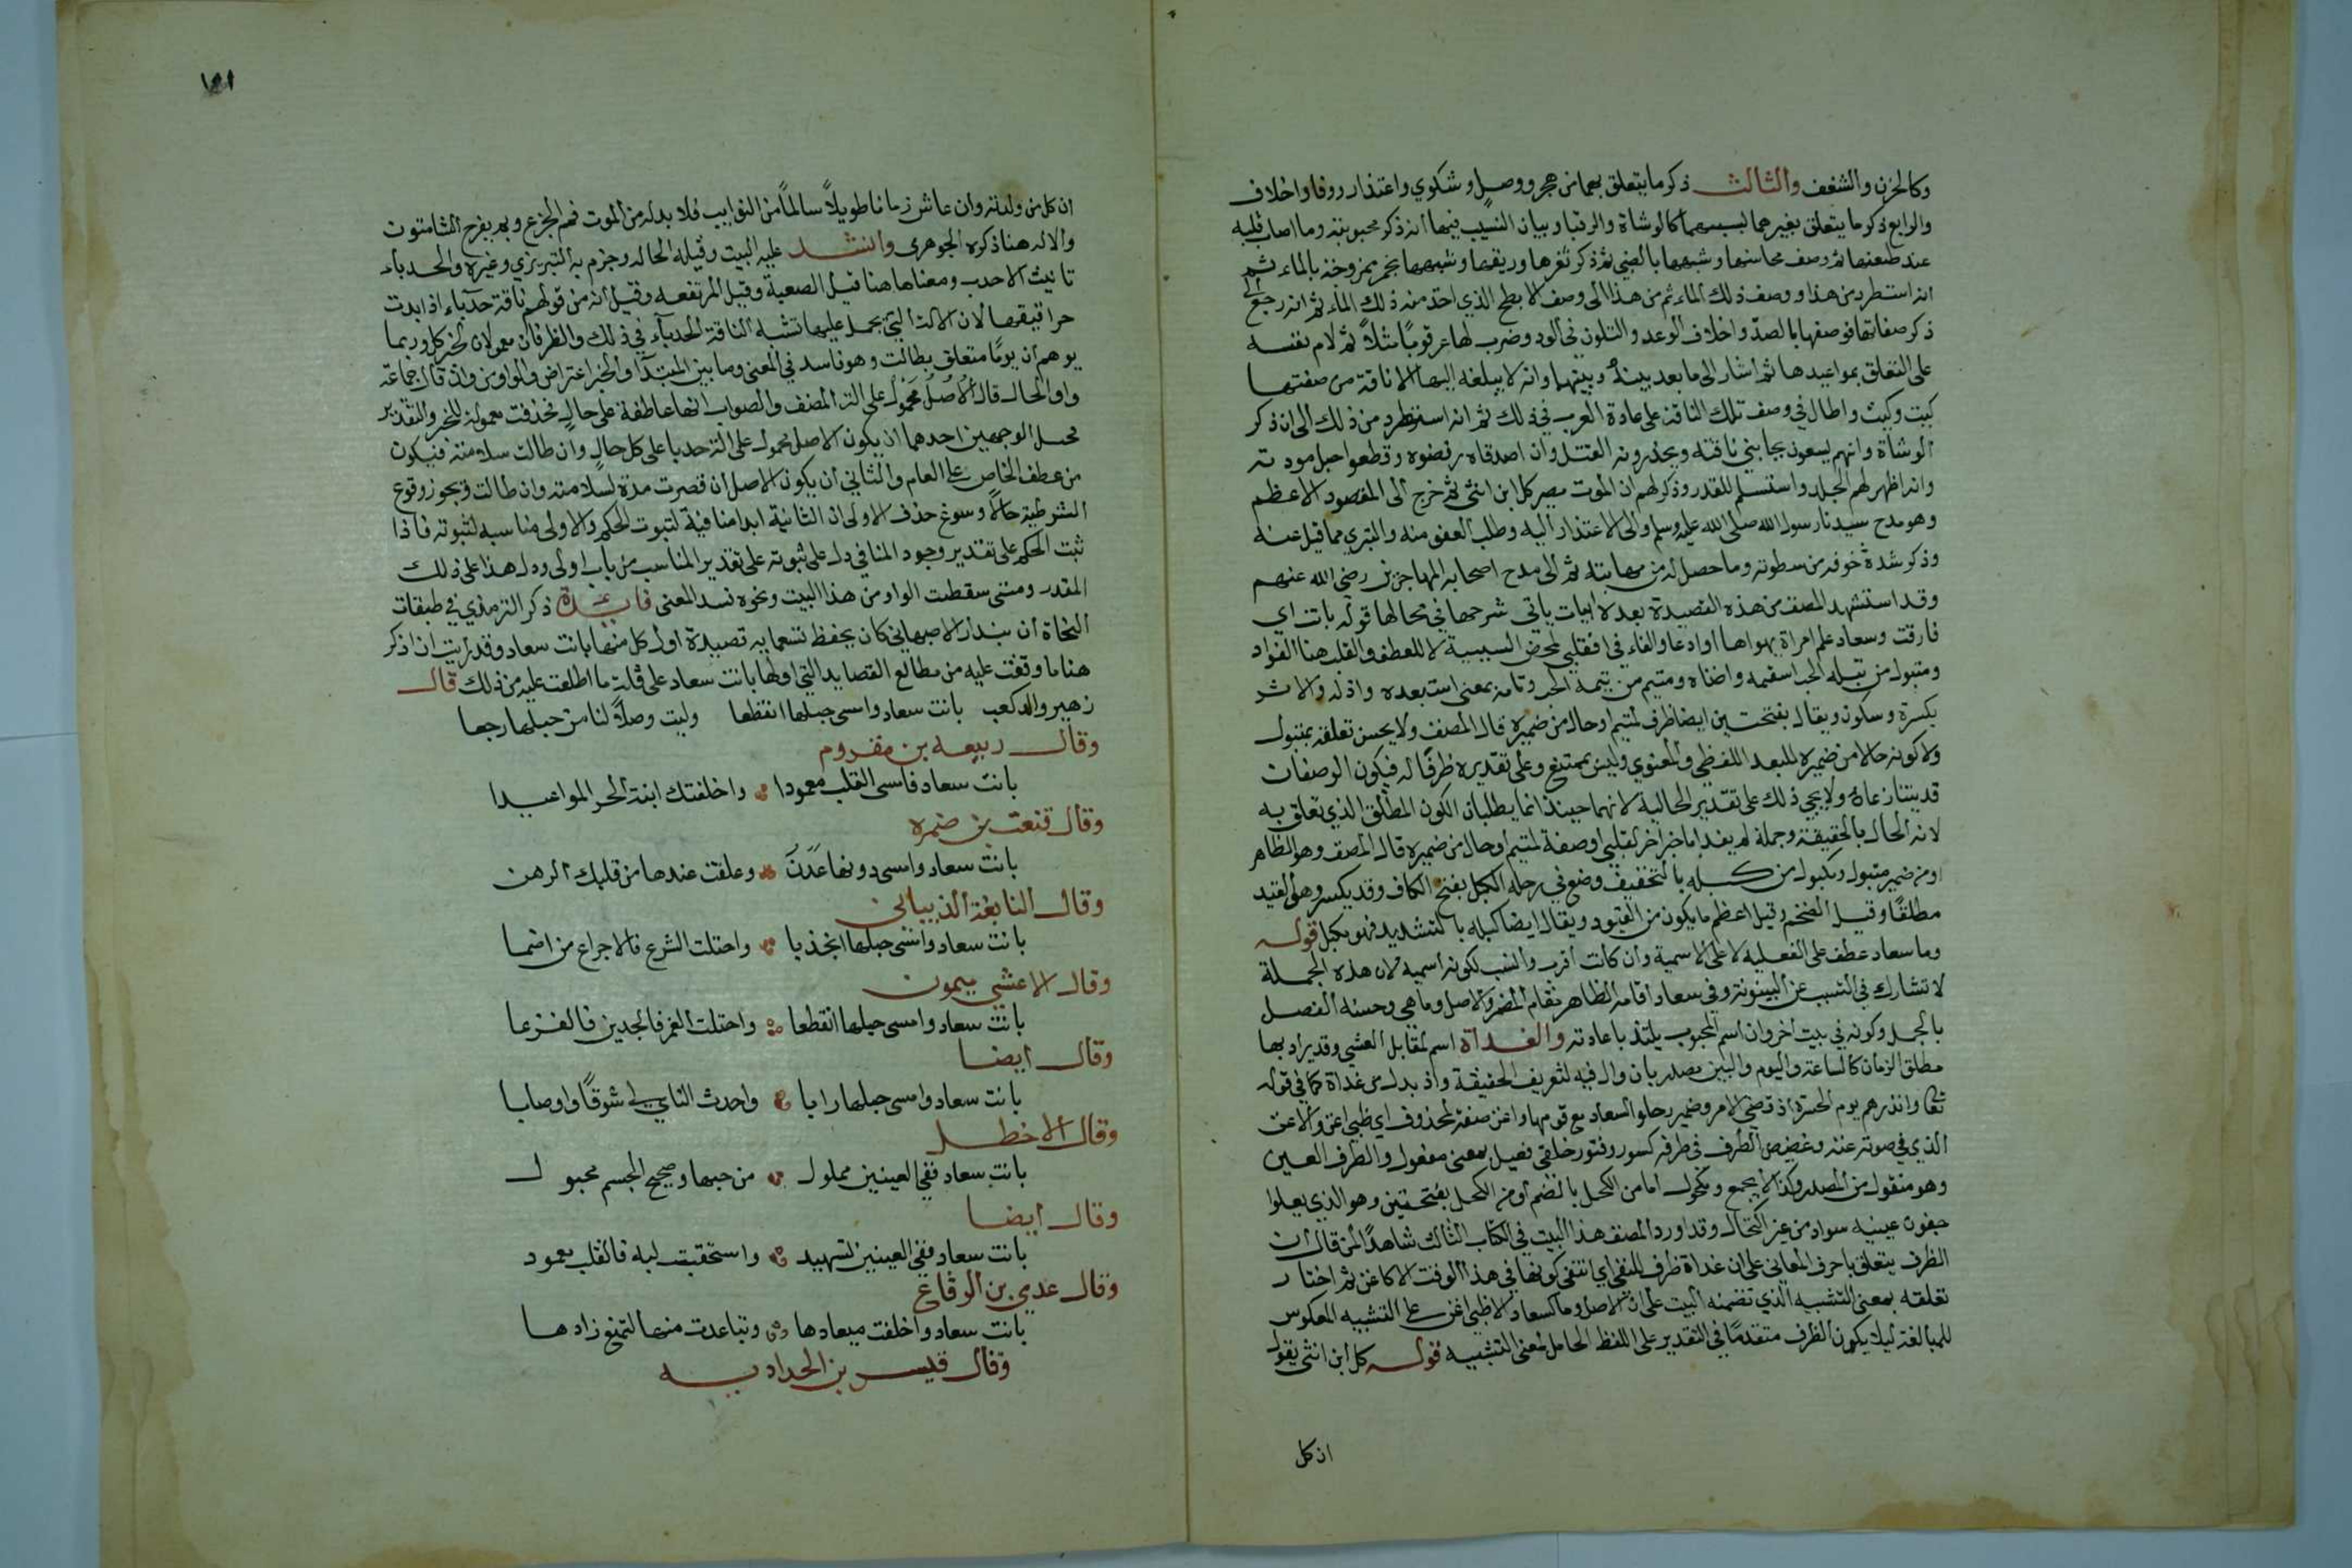 وكالحزن والشغف والثالث ذكر ما يتعلق بهما من هجر ووصل وشكوي واعتذار ووفا واخلاف
والرابع ذكر ما يتعلق بغيرهما بسببهما كالوشاة والرقبا وبيان النسيب فيها انه ذكر محبوبته وما اصاب قلبه
عند ظعنها ثم وصف محاسنها وشبهها بالظبي ثم ذكر ثغرها وريقها وشبهها بخمر ممزوجة بالماء ثم
انه استطرد من هذا ووصف ذلك الماء ثم من هذا الى وصف الابطح الذي اخذ منه ذلك الماء ثم انه رجع الى
ذكر صفاتها فوصفها بالصد واخلاف الوعد والتلون في الود وضرب لها عرقوبا مثلاً ثم لام نفسه
على التعلق بمواعيدها ثم اشار الى ما بعد بينه وبينها وانه لا يبلغه اليها الا ناقة من صفتها
كيت وكيت واطال في وصف تلك الناقة على عادة العرب في ذلك ثم انه استطرد من ذلك الى ان ذكر
الوشاة وانهم يسعون بجانبي ناقته ويحذرونه القتل وان اصدقاه رفضوه وقطعوا حبل مودته
وانه اظهر لهم الجلد واستسلم للقدر وذكر لهم ان الموت مصير كل ابن انثى ثم خرج الى المقصود الاعظم
وهو مدح سيدنا رسول الله صلى الله عليه وسلم والى الاعتذار اليه وطلب العفو منه والتبري مما قيل عنه
وذكر شدة خوفه من سطوته وما حصل له من مهابته ثم الى مدح اصحابه المهاجرين رضي الله عنهم
وقد استشهد المصنف من هذه القصيدة بعدة ابيات ياتي شرحها في محالها قوله بانت اي
فارقت وسعاد علم امراة يهواها او ادعا والفاء في فقلبي لمحض السببية لا للعطف والقلب هنا الفؤاد
ومتبول من تبله الحب اسقمه واضناه ومتيم من تيمه الحب وتامه بمعنى استبعده واذله والاثر
بكسرة وسكون ويقال بفتحتين ايضا ظرف لمتيم او حال من ضميره قال المصنف ولا يحسن تعلقه بمتبول
ولا كونه حالا من ضميره للبعد اللفظي والمعنوي وليس بممتنع وعلى تقديره ظرفًا له فيكون الوصفان
قد يتنازعاه ولا يجي ذلك على تقدير الحالية لانهما حينئذ انما يطلبان الكون المطلق الذي تعلق به
لانه الحال بالحقيقة وجملة لم يفد اما خبر اخر لقلبي او صفة لمتيم او حال من ضميره قال المصنف وهو الظاهر
او من ضمير متبول ومكبول من كبله بالتخفيف وضع في رجله الكبل بفتح الكاف وقد يكسر وهو القيد
مطلقًا وقيل الضخم وقيل اعظم ما يكون من القيود ويقال ايضا كبله بالتشديد فهو مكبل قوله
وما سعاد عطف على الفعلية لا على الاسمية وان كانت اقرب وانسب لكونه اسمية لان هذه الجملة
لا تشارك في التسبب عن البينونة وفي سعاد اقامة الظاهر مقام المضمر والاصل وما هي وحسنه الفصل
بالجمل وكونه في بيت اخر وان اسم المحبوب يلتذ باعادته والغداة اسم لمقابل العشي وقد يراد بها
مطلق الزمان كالساعة واليوم والبين مصدر بان وال فيه لتعريف الحقيقة واذ بدل من غداة كما في قوله
تعالى وانذرهم يوم الحسرة اذ قضي الامر وضمير رحلوا لسعاد مع قومها واغن صفة لمحذوف اي ظبي اغن والاغن
الذي في صوته غنه وغضيض الطرف في طرفه كسور وفتور خلقي فعيل بمعنى مفعول والطرف العين
وهو منقول من المصدر ولذا لا يجمع ومكحول اما من الكحل بالضم او من الكحل بفتحتين وهو الذي يعلوا
جفون عينيه سواد من غير اكتحال وقد اورد المصنف هذا البيت في الكتاب الثالث شاهدًا لمن قال ان
الظرف يتعلق باحرف المعاني على ان غداة ظرف للنفي اي انتفى كونها في هذا الوقت الا كاغن ثم اختار
تعلقه بمعنى التشبيه الذي تضمنه البيت على ان الاصل وما كسعاد الا ظبي اغن على التشبيه المعكوس
للمبالغة ليلا يكون الظرف متقدمًا في التقدير على اللفظ الحامل لمعنى التشبيه قوله كل ابن انثى يقول
ان كل
ان كل من ولدته وان عاش زمانا طويلاً سالماً من النوايب فلا بد له من الموت فم الجزع وبم يفرح الشامتون
والاله هنا ذكره الجوهري وانشد عليه البيت وقيل الحاله وجزم به التبريزي وغيره والحدباء
تانيث الاحدب ومعناها هنا قيل الصعبة وقيل المرتفعه وقيل انه من قولهم ناقة حدباء اذا بدت
حراقيفها لان الالة التي يحمل عليها تشبه الناقة الحدباء في ذلك والظرفان معمولان لخبر كل وربما
يوهم ان يومًا متعلق بطالت وهو فاسد في المعنى وما بين المبتدا والخبر اعتراض والواو من وان قال جماعة
واو الحال قال الاصل محمول على الة المصنف والصواب انها عاطفة على حال حذفت معمولة للخبر والتقدير
محل الوجهين احدهما ان يكون الاصل محمول على الة حدبا على كل حال وان طالت سلامته فيكون
من عطف الخاص على العام والثاني ان يكون الاصل ان قصرت مدة لسلامته وان طالت ويجوز وقوع
الشرطية حالاً وسوغ حذف الاولى ان الثانية ابدا منافية لثبوت الحكم والاولى مناسبه لثبوته فاذا
ثبت الحكم على تقدير وجود المنافي دل على ثبوته على تقدير المناسب من باب اولى ودل هذا على ذلك
المقدر ومتى سقطت الواو من هذا البيت ونحوه فسد المعنى فايدة ذكر الترمذي في طبقات
النحاة ان بندار الاصبهاني كان يحفظ تسعمايه قصيدة اول كل منها بانت سعاد وقد رايت ان اذكر
هنا ما وقفت عليه من مطالع القصايد التي اولها بانت سعاد على قلة ما اطلعت عليه من ذلك قال
زهير والد كعب بانت سعاد وامسى حبلها انقطعا وليت وصلاً لنا من حبلها رجعا
وقال ربيعه بن مقروم
بانت سعاد فامسى القلب معمودا واخلفتك ابنة الحر المواعيدا
وقال قنعب بن ضمره
بانت سعاد وامسى دونها عَدَنُ وعلقت عندها من قلبك الرهن
وقال النابغة الذبياني
بانت سعاد وامسى حبلها انجذبا واحتلت الشرع فالاجراع من اضما
وقال الاعشي ميمون
بانت سعاد وامسى حبلها انقطعا واحتلت الغمر فالجدين فالفرعا
وقال ايضا
بانت سعاد وامسى حبلها رابا واحدث الناي لي شوقًا واوصابا
وقال الاخطل
بانت سعاد ففي العينين مملول من حبها وصحيح الجسم مخبول
وقال ايضا
بانت سعاد ففي العينين تسهيد واستحقبت لبه فالقلب معمود
وقال عدي بن الرقاع
بانت سعاد واخلفت ميعادها وتباعدت منها لتمنع زادها
وقال قيس بن الحداديه